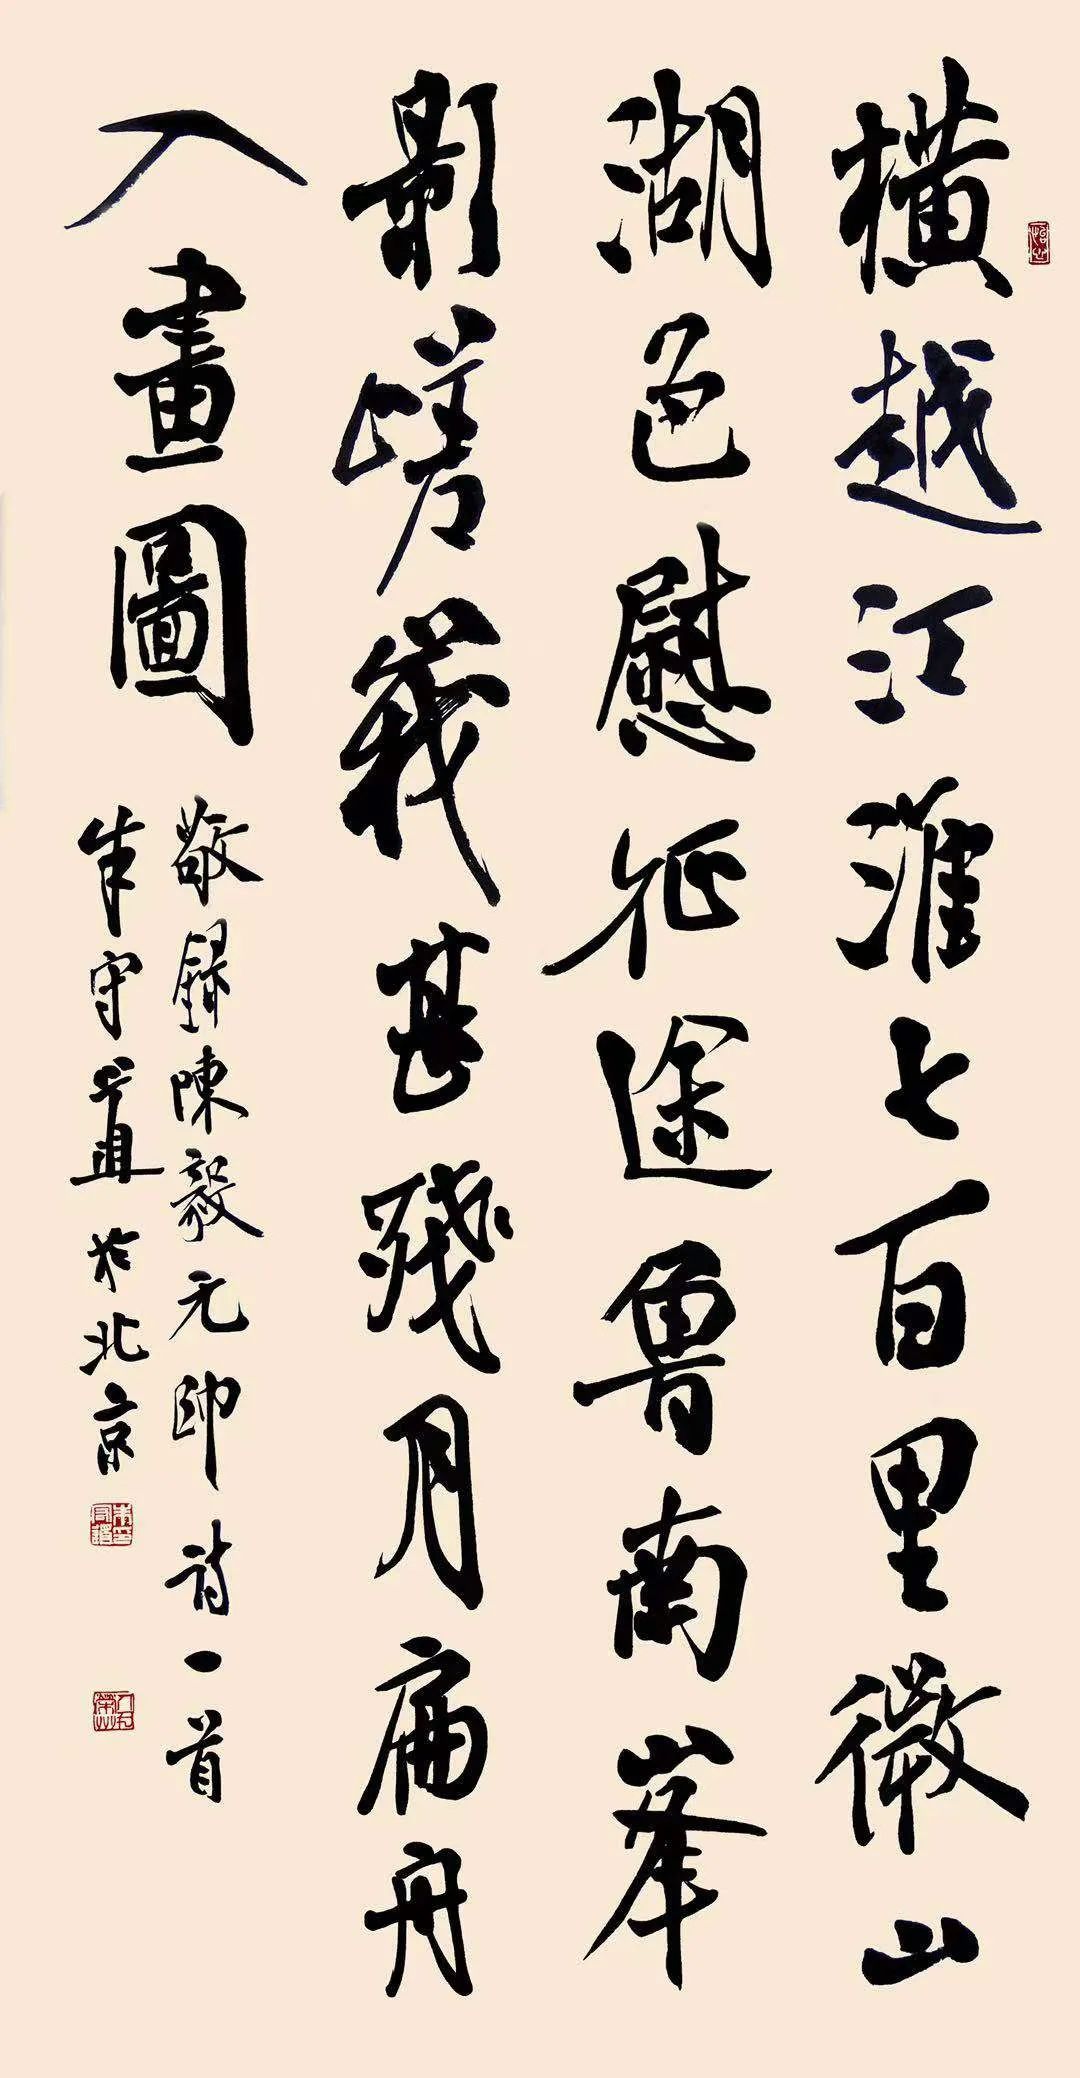 横越江淮七百里微山
湖色慰征途魯南峯
影嵯峨甚殘月扁舟
入畫圖
敬録陳毅元帥詩一首
朱守道於北京